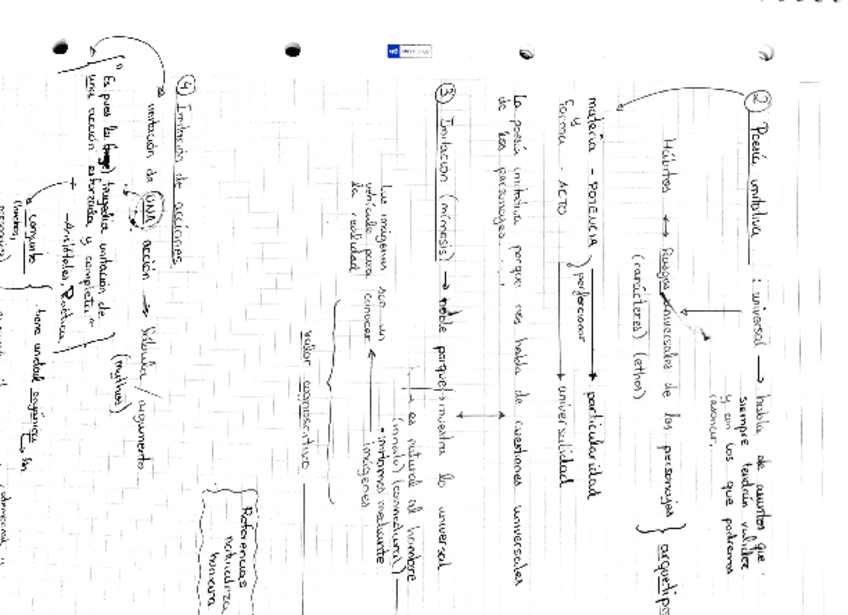 ② Poesía imitativa : universal → habla de asuntos que
siempre tendrán validez
y con los que podremos
razonar.
Hábitos ↔ Rasgos universales de los personajes } arquetipos
(carácteres) (ethos)
materia - POTENCIA } perfeccionar → particularidad
y
forma - ACTO → universalidad
La poesía imitativa porque nos habla de cuestiones universales
de los personajes...
③ Imitación (mímesis) → noble porque muestra lo universal
→ es natural al hombre
(innato) (connatural)
imitamos mediante
imágenes
Las imágenes son un
vehículo para conocer
la realidad
valor cognoscitivo
Referencias
naturaleza
humana
④ Imitación de acciones
imitación de UNA acción → fábula / argumento
(mythos)
"Es pues la tragedia imitación de
una acción esforzada y completa"
-Aristóteles, Poética
conjunto { tiene unidad orgánica